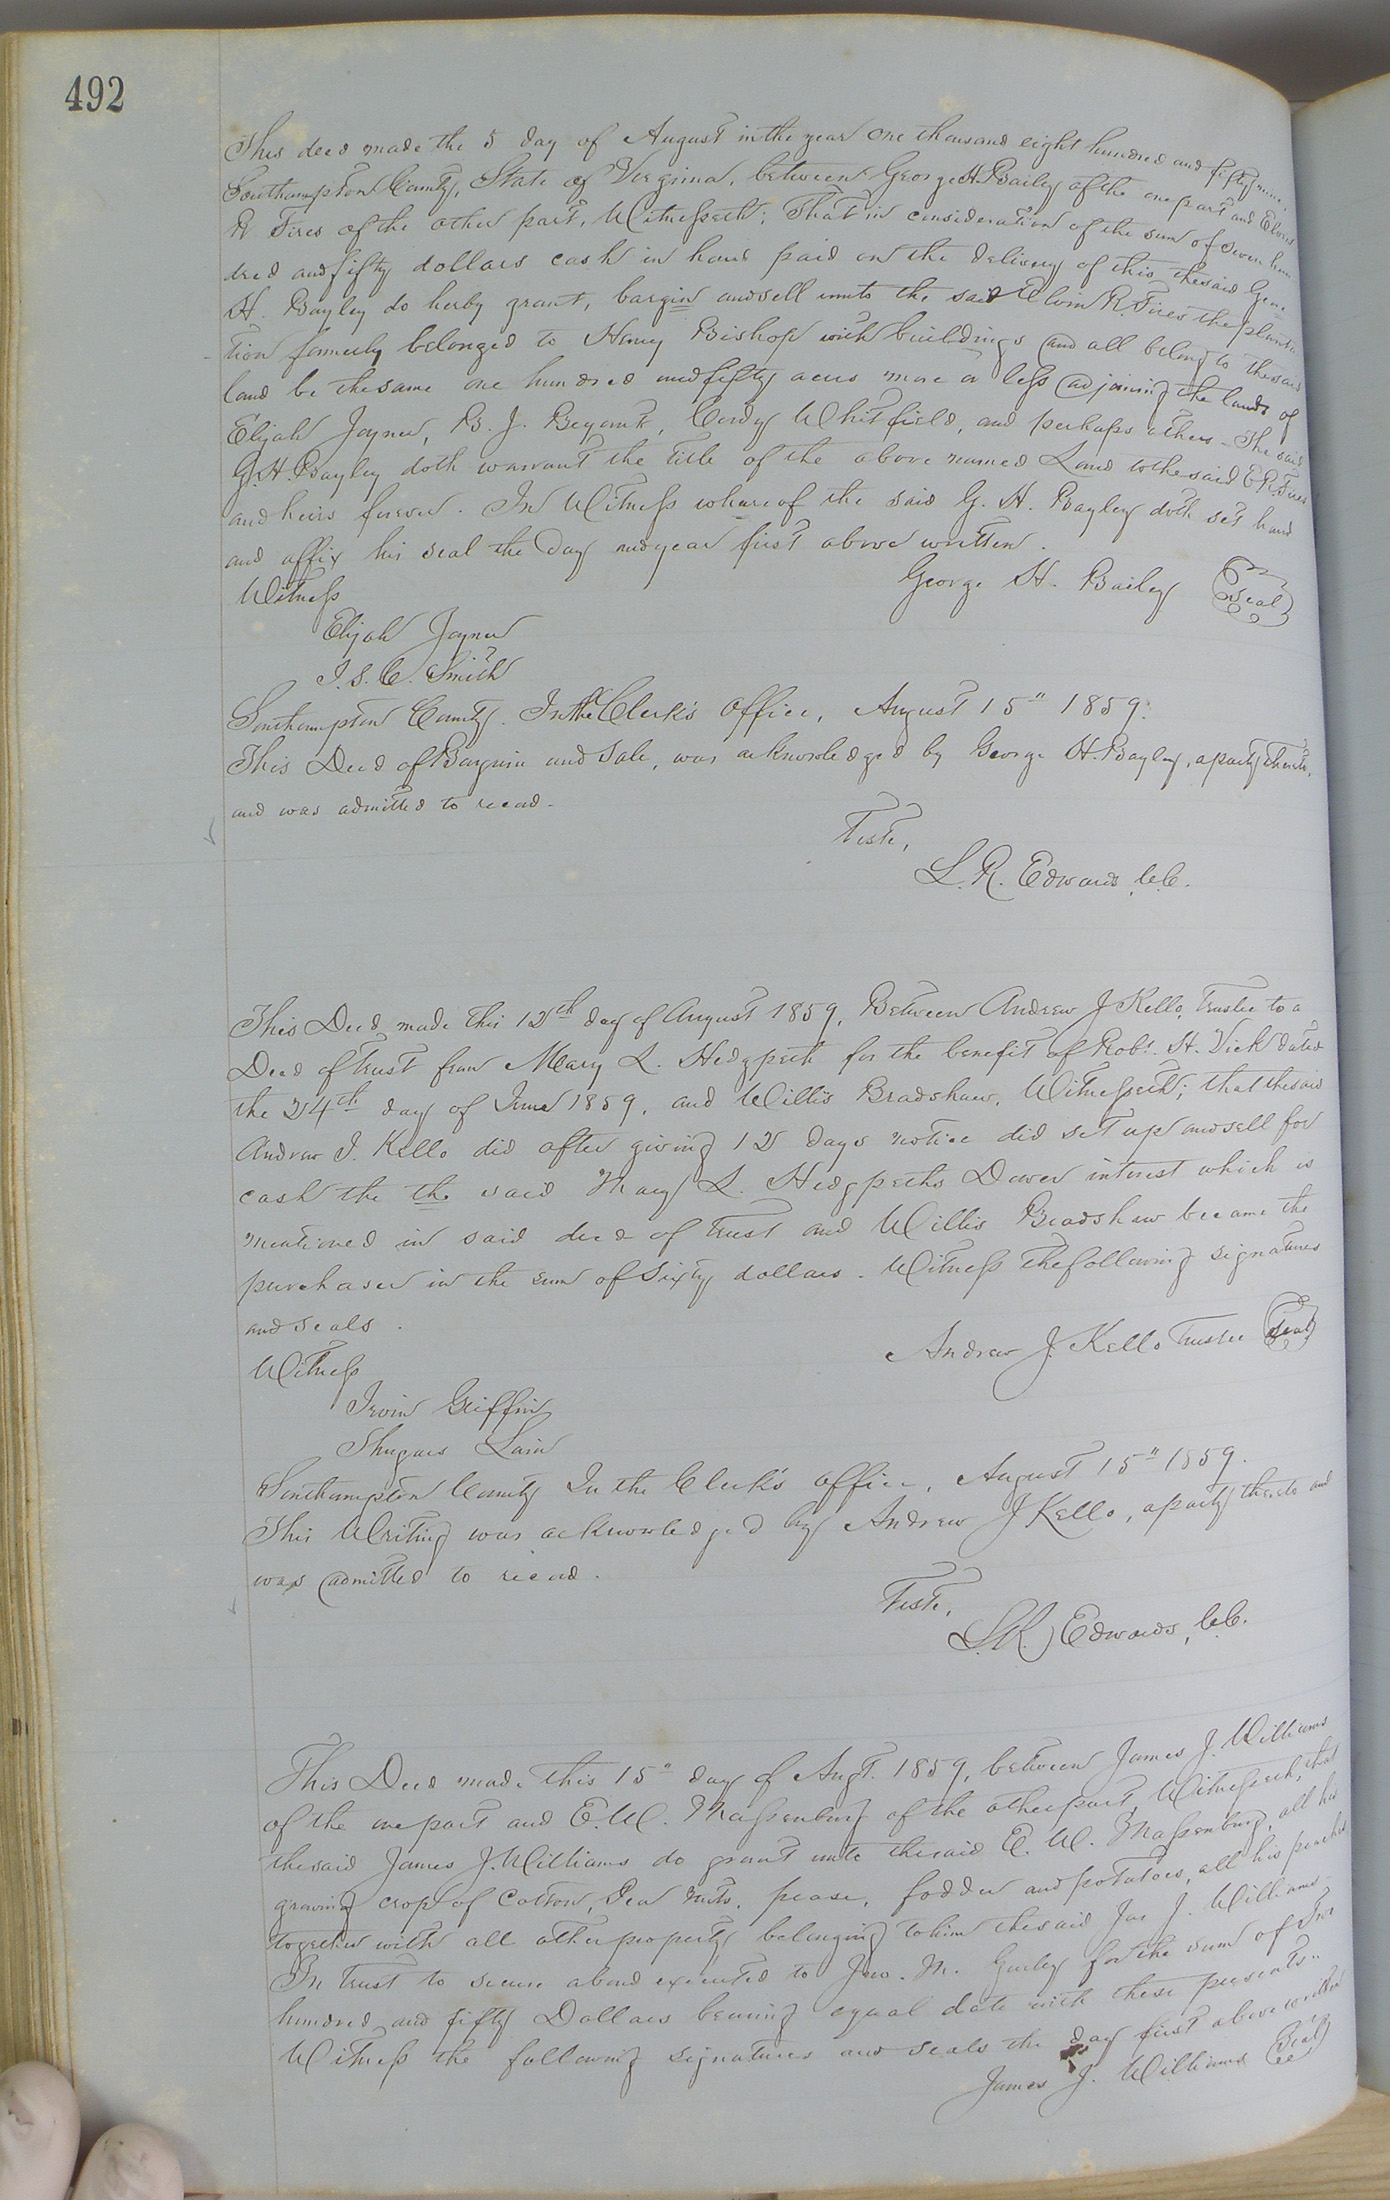 492
This deed made the 5 day of August in the year one thousand eight hundred and fifty nine,
Southampton County, State of Virginia, between George H. Bailey of the one part and Elvin
R Fires of the other part, Witnesseth; That in consideration of the sum of seven hun
dred and fifty dollars cash in hand paid on the delivery of this, the said George
H. Bayley do herby grant, bargin and sell unto the said Elvin R. Fires the planta
tion formerly belonged to Henry Bishop with buildings and all belong to the said
land be the same one hundred and fifty acres more or less adjoining the lands of
Elijah Joyner, B. J. Bryant, Cordy Whitfield, and perhaps others - The said
G. H. Bayley doth warrant the title of the above named Land to the said E. R. Fires
and heirs forever. In Witness whareof the said G. H. Bayley doth set hand
and affix his seal the Day and year first above written.
Witness
George H. Bailey Seal
Elijah Joyner
J. S. C. Smith
Southampton County. In the Clerk's Office, August 15" 1859.
This Deed of Bargain and Sale, was acknowledged by George H. Bayley, a party thereto,
and was admitted to record.
Teste,
L. R. Edwards, C.C.
This Deed made this 12th day of August 1859, Between Andrew J Kello, Trustee to a
Deed of trust from Mary L. Hedgpeth for the benefit of Robt. H. Vick dated
the 24th day of June 1859, and Willis Bradshaw, Witnesseth; that the said
Andrew J. Kello did after giving 12 days notice did set up and sell for
cash the the said Mary L. Hedgpeths Dower interest which is
mentioned in said deed of trust and Willis Bradshaw became the
purchaser in the sum of Sixty dollars. Witness the following signatures
and seals.
Andrew J. Kello Trustee Seal
Witness
Irvin Griffin
Shugars Lain
Southampton County In the Clerk's office, August 15" 1859.
This Writing was acknowledged by Andrew J Kello, a party thereto and
was admitted to record.
Teste,
L. R. Edwards, C.C.
This Deed made this 15" day of Augt. 1859, between James J. Williams
of the one part and E. W. Massenburg of the other part, Witnesseth, that
the said James J. Williams do grant unto the said E. W. Massenburg, all his
growing crop of Cotton, Pea Nuts, pease, fodder and potatoes, all his peaches
together with all other property belonging to him the said Jas J. Williams -
In trust to secure a bond executed to Jno. M. Gurley for the sum of Two
hundred and fifty Dollars bearing equal date with these presents.
Witness the following signatures and seals the day first above written
James J. Williams Seal